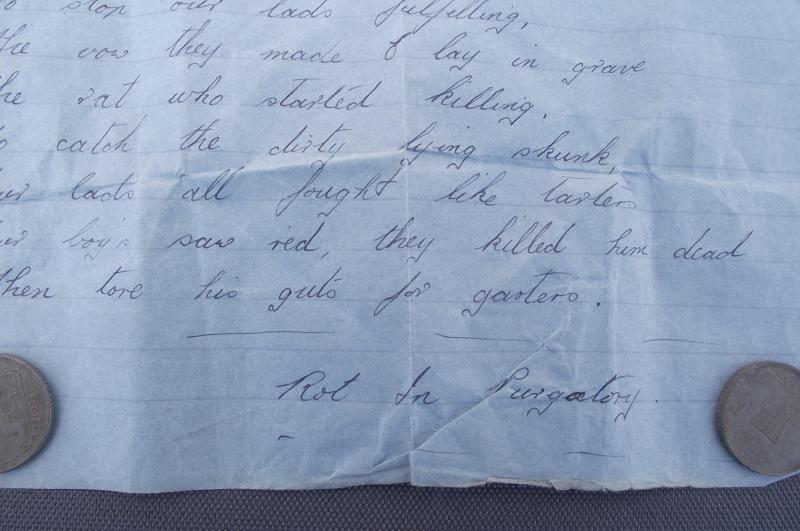 to stop our lads fulfilling,
the vow they made & lay in grave
the rat who started killing.
to catch the dirty lying skunk,
our lads all fought like tarters
our boys saw red, they killed him dead
then tore his guts for garters.
Rot In Purgatory.